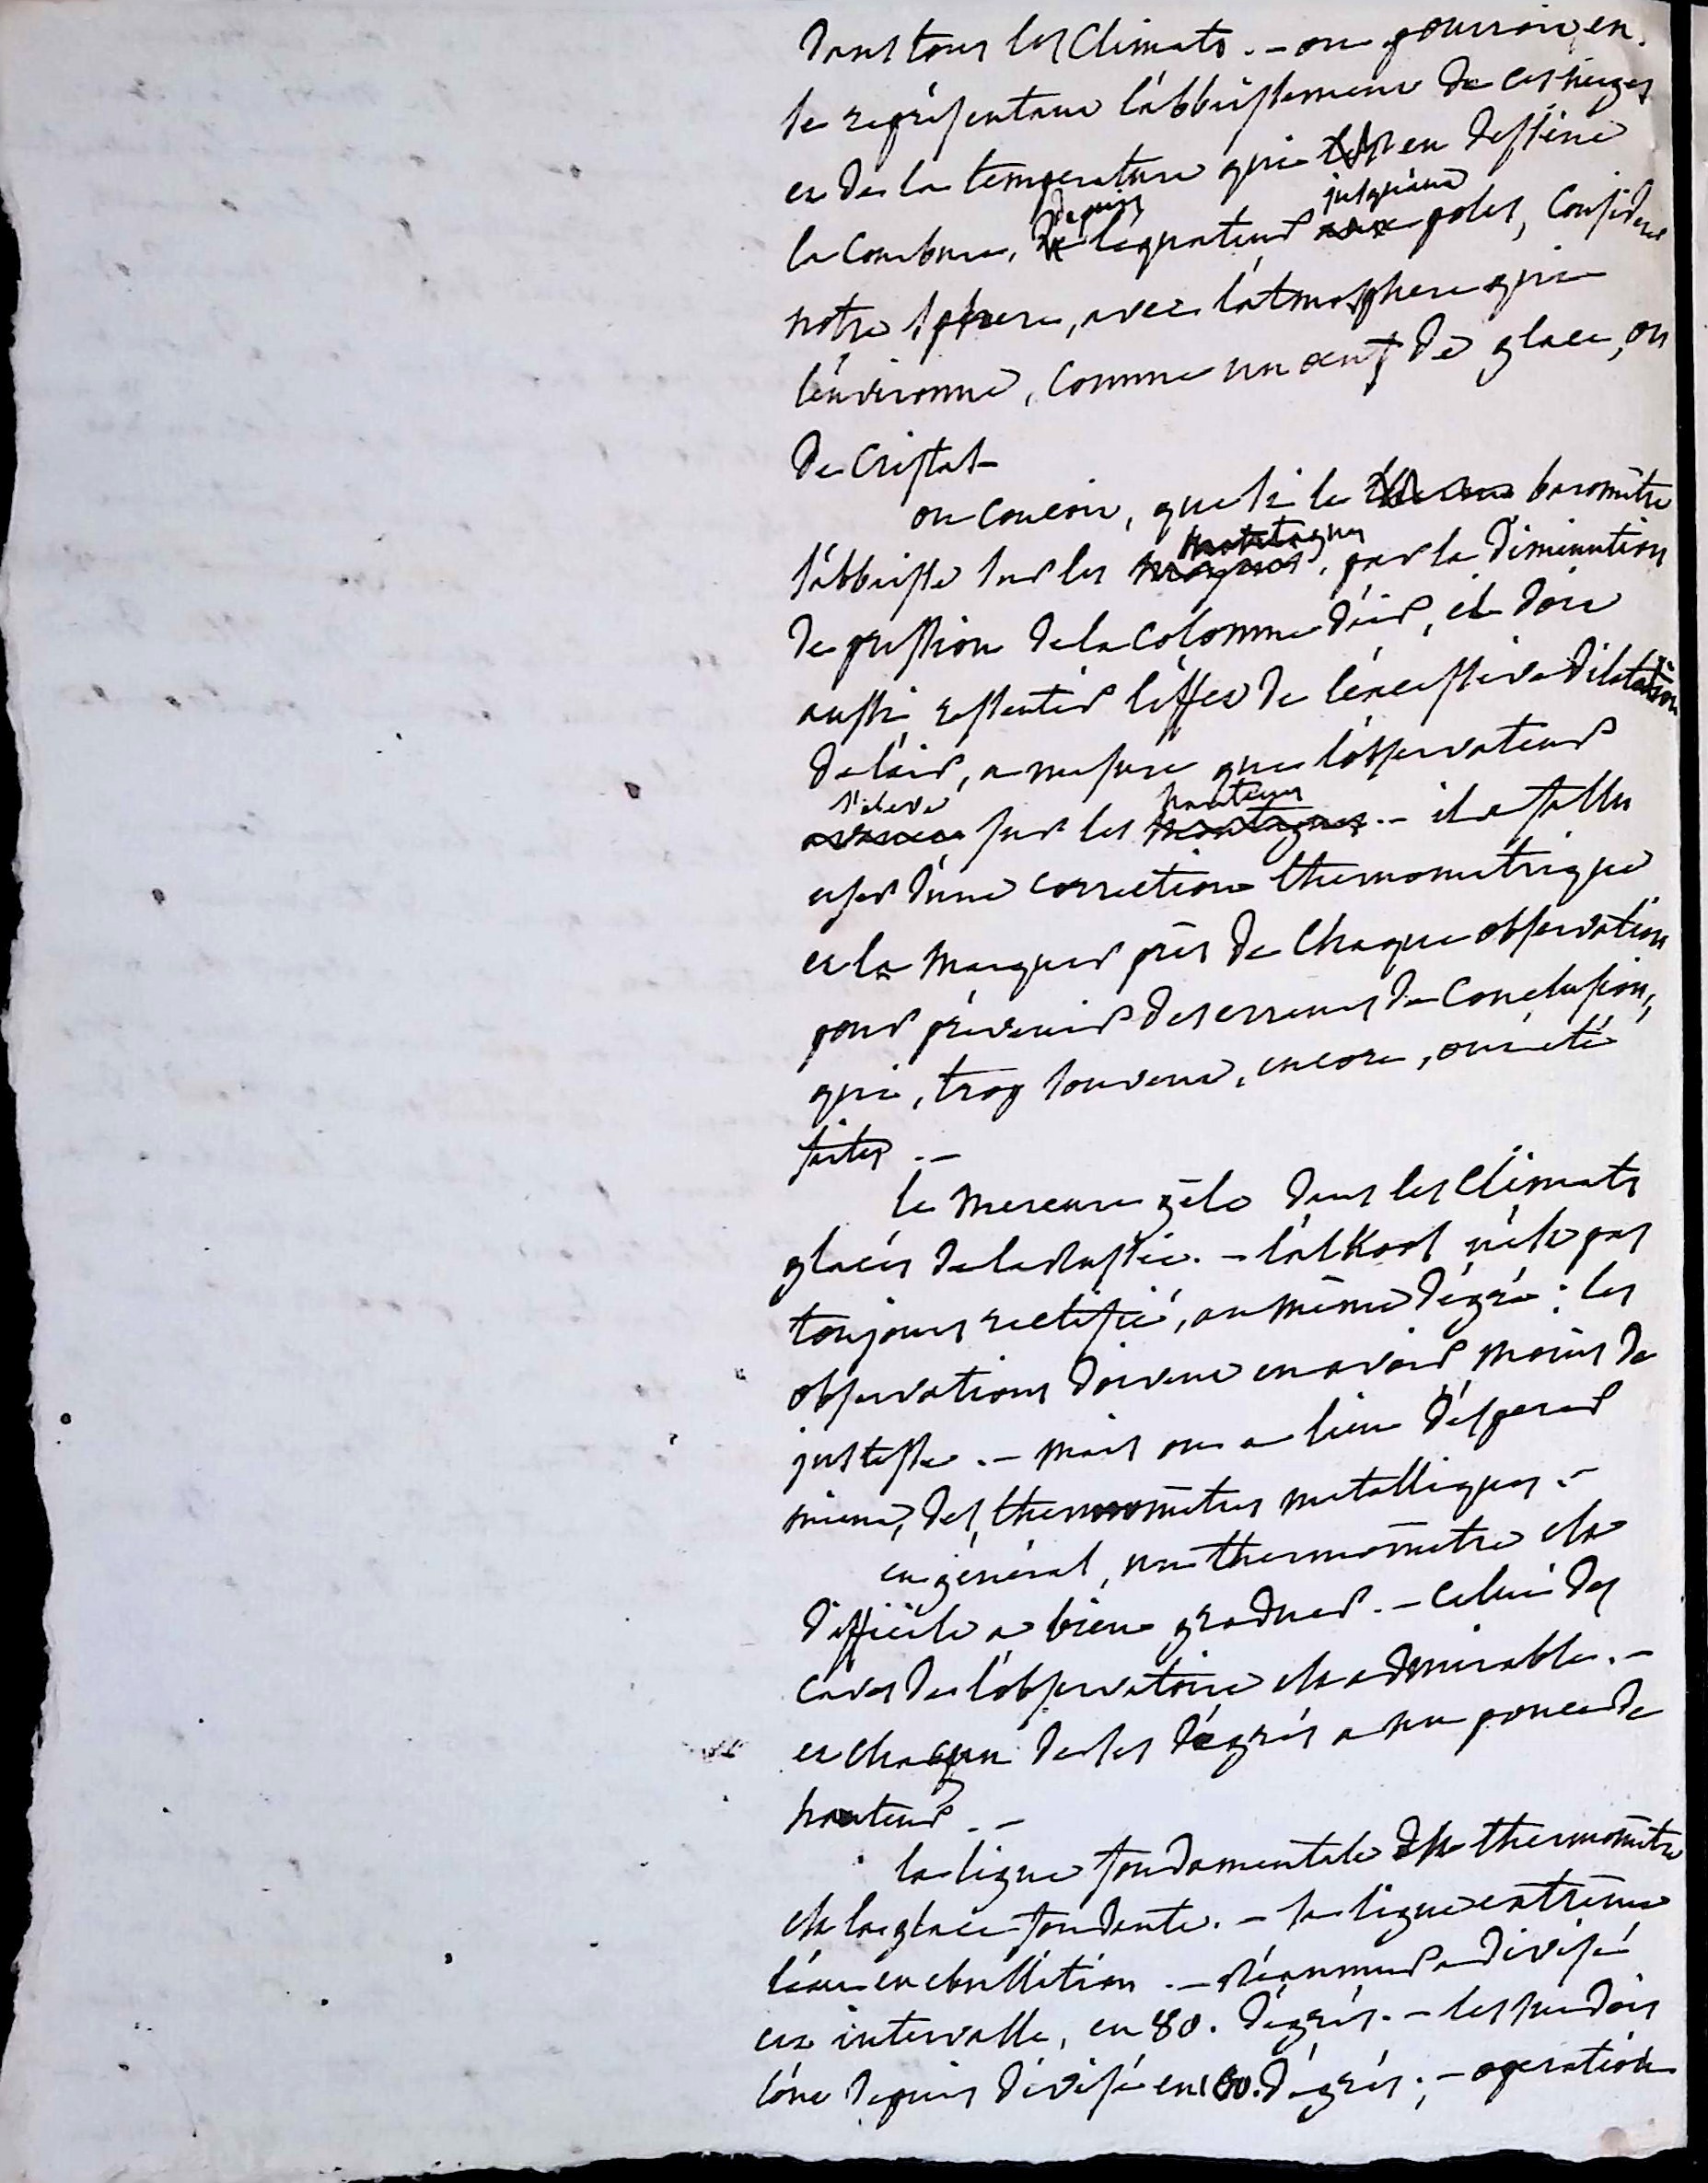 dans tous les Climats. – on pourroit en
se représentant l'abbaissement de ces neiges
et de la température qui en dessine
la Courbure, depuis l'équateur jusqu'aux poles, Considerer
notre sphere, avec l'atmosphere qui
l'environne, Comme un œuf de glace, ou
de Cristal –
on Concoit, que si le baromêtre
s'abbaisse sur les montagnes, par la diminution
de pression de la Colonne d'air, il doit
aussi ressentir l'effet de l'excessive dilatation
de l'air, a mesure que l'observateur
s'eleve sur les hauteurs – il a fallu
user d'une correction thermometrique
et la marquer près de Chaque observation
pour prévenir des erreurs de Conclusion,
qui, trop souvent, encore, ont été
faites. –
le mercure gèle dans les Climats
glacés de la Russie. – l'alkool n'est pas
toujours rectifié, au même dégré : les
observations doivent en avoir moins de
justesse. – mais on a lieu d'esperer
mieux, des thermomêtres metalliques. –
en général, un thermomêtre est
difficile a bien graduer. – Celui des
Caves de l'observatoire est admirable. –
et chacun de ses dégrés a un pouce de
hauteur. –
la ligne fondamentale du thermomêtre
est la glace fondante. – sa ligne extrême
l'eau en ebullition. – Réaumur a divisé
cet intervalle, en 80. dégrés. – les suedois
l'ont depuis divisé en 100. dégrés ; – operation